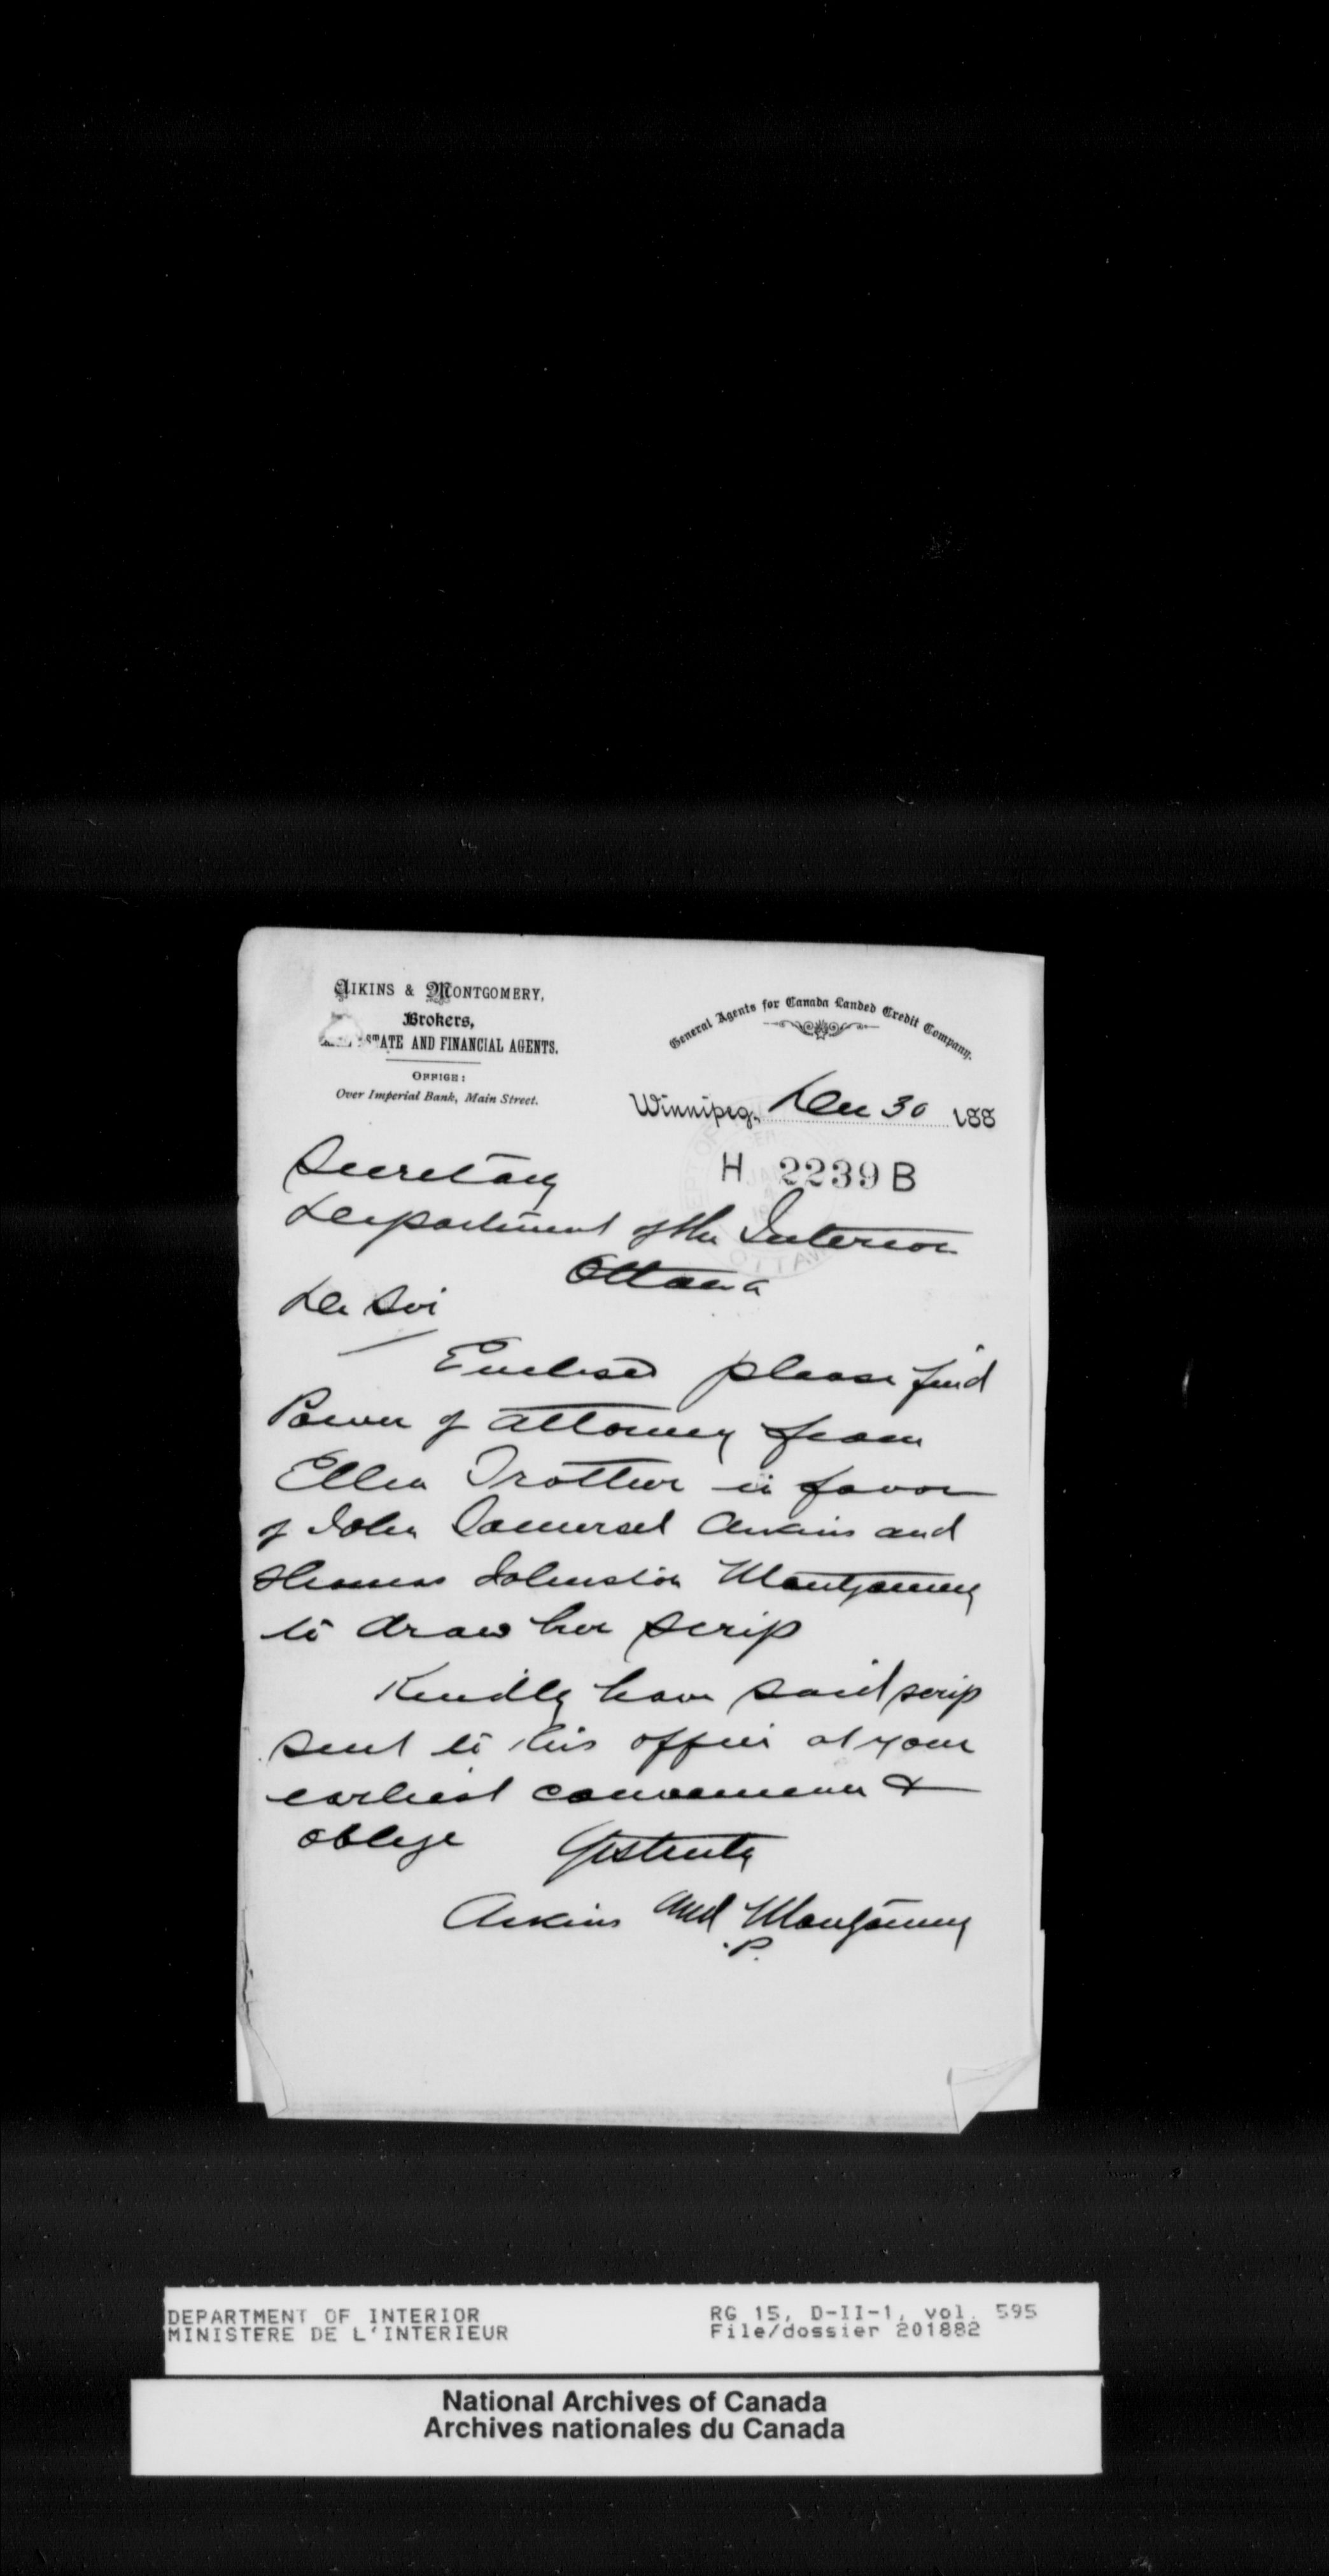 AIKINS & MONTGOMERY,
Brokers,
STATE AND FINANCIAL AGENTS.
OFFICE:
Over Imperial Bank, Main Street.
General Agents for Canada Landed Credit Company.
Winnipeg, Dec 30 188
H 2239 B
Secretary
Department of the Interior
Ottawa
De Sir
Enclosed please find
Power of attorney from
Ellen Trottier in favor
of John Somerset Aikins and
Thomas Johnston Montgomery
to draw her scrip
Kindly have said scrip
sent to this office at your
earliest convenience &
oblige Yrs truly
Aikins and Montgomery
P.
DEPARTMENT OF INTERIOR
MINISTERE DE L'INTERIEUR
RG 15, D-II-1, vol. 595
File/dossier 201882
National Archives of Canada
Archives nationales du Canada